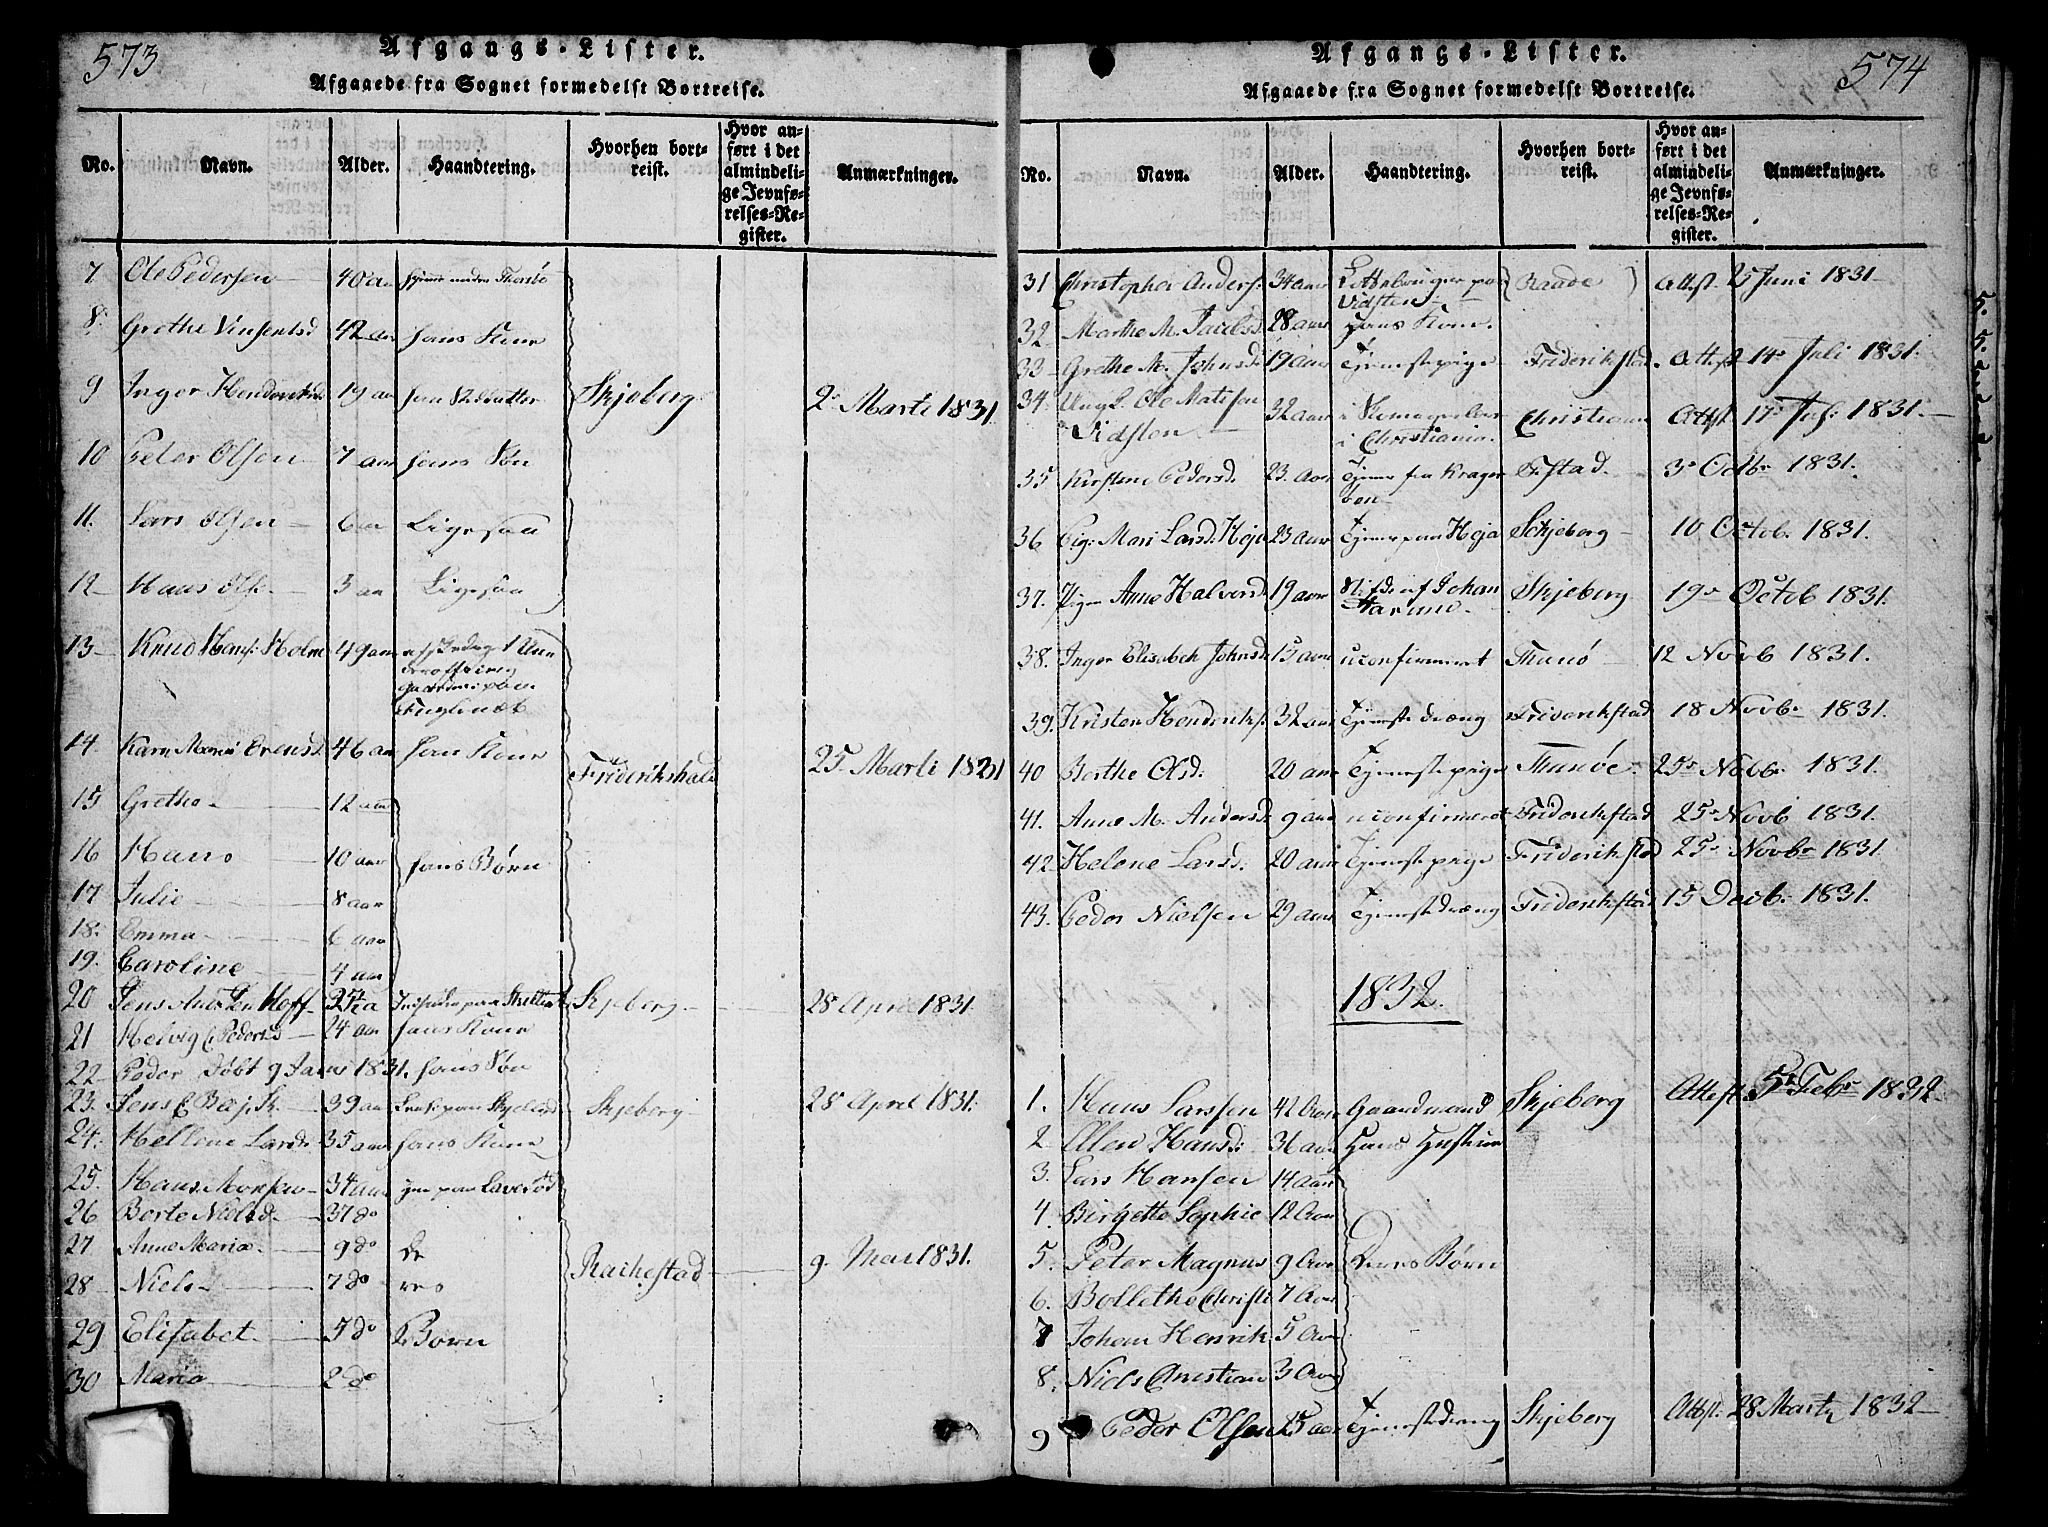 573
Afgangs-Lister.
Afgaaede fra Sognet formedelst Bortreise.
No. Navn. Alder. Haandtering. Hvorhen bortreist. Hvor anført i det almindelige Jevnførelses-Register. Anmærkninger.
7 Ole Pedersen 40 aa
8. Grethe Vinsentsd 42 aa hans Kone
9 Inger 19 aa Skjeberg 2 Marti 1831
10 Peter Olsen 7 aar hans Søn
11. Lars Olsen 6 aa Ligesaa
12 Hans Ols. 3 aa Ligesaa
13 Knud Hans. Holm 49 aa
14 Karn Maria 46 aa hans Kone Frideriks­hald 25 Marti 1831
15 Grethe 12 aar
16 Hans 10 aar hans Børn
17 Julie 8 aar
18. Emma 6 aar
19. Caroline 4 aar
20 Jens Hoff Skjeberg 28 April 1831.
21 Helvig Pedersd 24 aar hans Kone
22 Peder Døbt 9 1831. hans Søn
23. Jens 39 aa Skjeberg 28 April 1831.
24. Hellene Larsd. 35 aar hans Kone
25. Hans Monsen 34 aar
26 Berte Nielsd. 37 do
27 Anne Maria 9 do De
28 Niels 7 do res Rackestad 9. Mai 1831.
29 Elisabet 5 do Børn
30 Maria 2 do
574
Afgangs-Lister.
Afgaaede fra Sognet formedelst Bortreise.
No. Navn. Alder. Haandtering. Hvorhen bortreist. Hvor anført i det almindelige Jevnførelses-Register. Anmærkninger.
31 Christopher Anders. 34 aar Raade Attst 25 Juni 1831
Vidsten
32 Marthe M. Jacobsd 28 aar hans Kone.
33 Grethe M. Johnsd 19 aar Tjenestepige Friderikstad. Attst 14 Juli 1831.
34. Ungk. Ole Matisen 32 aar Christiania Attst 17 1831.
Vidsten i Christiania.
35 Kirstine Pedersd. 23. aar Tjener fra Krager F.stad. 3 Octbr 1831.
36 Pig. Mari Larsd. Heja 23 aar Tjener paa Heja Skjeberg 10 Octob. 1831.
37. Pigen Anne Halvorsd 19 aar Johan Skjeberg 19 Octob 1831.
38. Inger Elisabeth Johnsd 15 aar uconfirmeret Thunø 12 Novb 1831.
39. Kristen Henderiks. 32 aar Tjenestedræng Friderikstad 18 Novbr 1831.
40 Berthe Olsd. 20 aar Tjenestepige Thunøe 25 Novbr 1831.
41. Anne M. Andersd. 9 aar uconfirmeret Friderikstad 25 Novb 1831.
42 Helene Larsd. 20 aar Tjenestepige Friderikstad 25 Novbr 1831
43. Peder Nielsen 29 aar Tjenestedræng Friderikstad 15 Decb. 1831.
1832.
1. Hans Larsen 42 Aar Gaardmand Skjeberg Attest 5 Febr 1832
2 Ellen Hansd: 36 aar Hans Hustrue
3. Lars Hansen 14 Aar
4. Birgette Sophie 12 Aar
5. Peter Magnus 9 Aar Deres Børn
6. Bollethe Christi 7 Aar
7 Johan Henrik 5 Aar
8. Niels Christian 3 Aar
9 Peder Olsen Tjenestedræng Skjeberg Attst. 28 Marts 1832